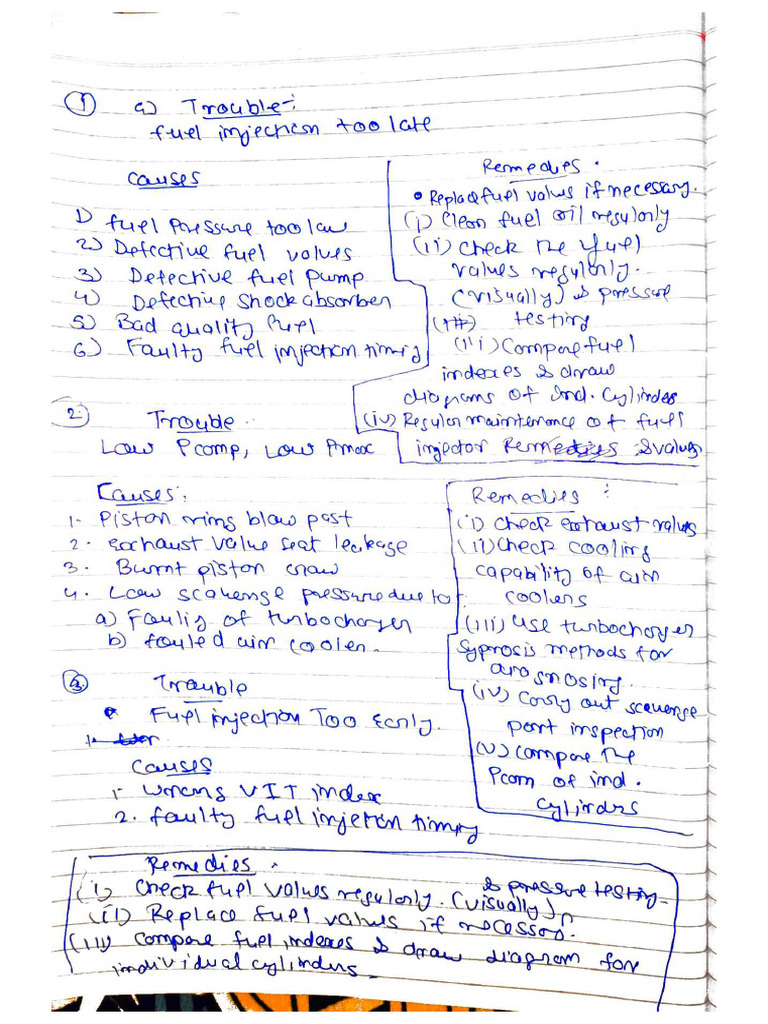 ① a) Trouble:-
fuel injection too late
Causes
1) fuel Pressure too low
2) Defective fuel valves
3) Defective fuel pump
4) Defective Shock absorber
5) Bad quality fuel
6) Faulty fuel injection timing
Remedies.
• Replace fuel valves if necessary.
(i) Clean fuel oil regularly
(ii) Check the fuel
valves regularly.
(visually) & pressure
testing
(iii) Compare fuel
indexes & draw
diagrams of Ind. Cylinders
(iv) Regular maintenance of fuel
injector & valves
2. Trouble
Low Pcomp, Low Pmax
Causes:
1. Piston ring blow past
2. exhaust valve seat leakage
3. Burnt piston crow
4. Low scavenge pressure due to:
a) Fouling of turbocharger
b) fouled air cooler.
Remedies:
(i) check exhaust valves
(ii) Check cooling
capability of air
coolers
(iii) Use turbocharger
methods for
(iv) Carry out scavenge
port inspection
(v) Compare the
Pcom of ind.
cylinders
③ Trouble
• Fuel injection Too Early.
Causes
1. Wrong VIT index
2. faulty fuel injetion timing
Remedies:
(i) Check fuel valves regularly. (visually) & pressure testing.
(ii) Replace fuel valves if necessary.
(iii) Compare fuel indexes & draw diagram for
individual cylinders.